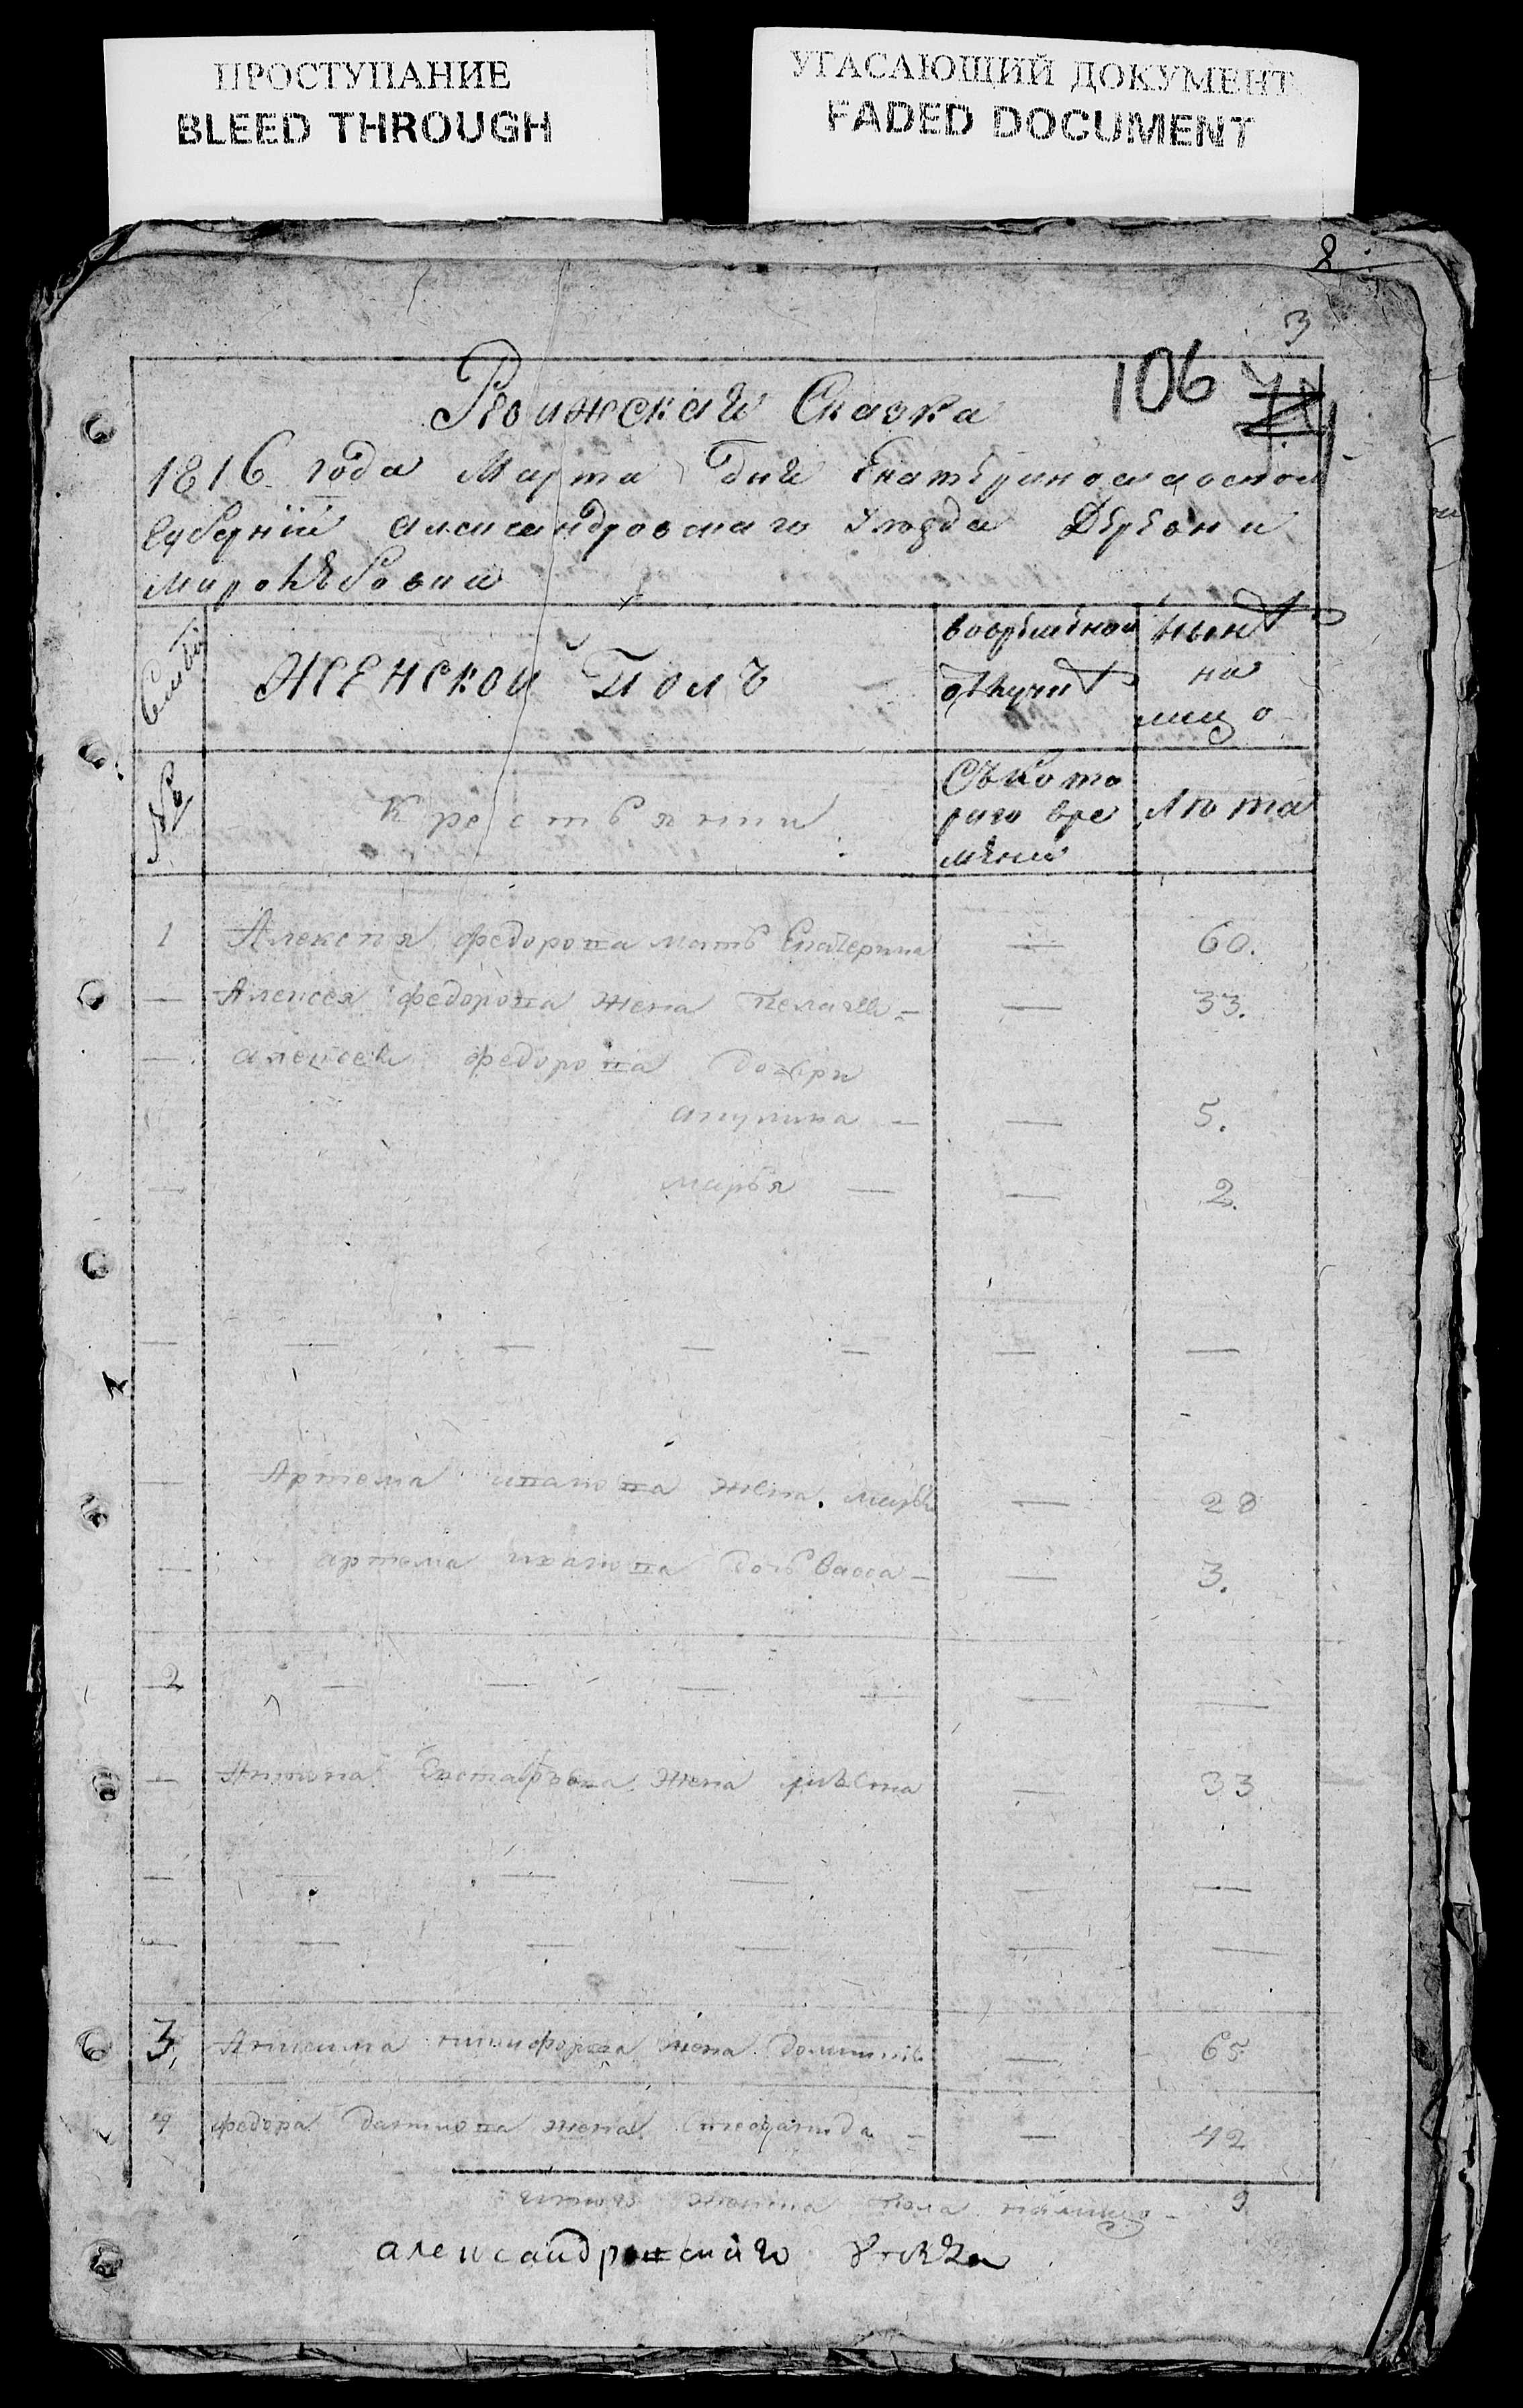 ПРОСТУПАНИЕ
BLEED THROUGH
УГАСАЮЩИЙ ДОКУМЕНТ
FADED DOCUMENT
8
3
106
Ревижская Сказка
1816 года Марта дня Екатеринославской
Губернїи александровскаго Уезда Деревни
Семьи
Женской Полъ
вовременной
отлучке
ныне
на
лицо
№
Крестьянии
Съкото
раго вре
мени
Лѣта
1 Алексея федорова мать Екатерина — 60.
— Алексея федорова жена Пелагея — — 33.
— алексея федорова дочери
акулина — — 5.
— марья — — 2.
— — — — — — —
— Артема жена марья — 28
— артема дочь васса — — 3.
2 — — — — — —
— Евстафьева жена — 33
— — — — — —
— — — — — —
3, Анисима никифорова жена — 65
4 федора жена — — 42
итого женска пола налицо — 9
александровскаго